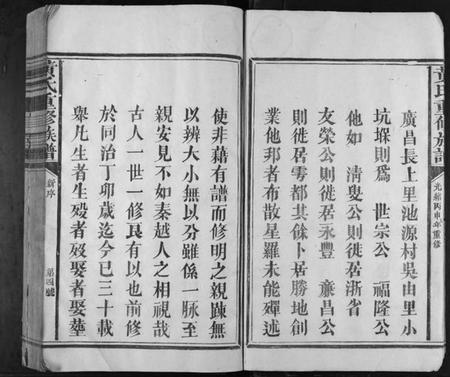 黃氏重修族譜
光緒丙申年重修
廣昌長上里池源村吳由里小
坑堢則爲　世宗公　福隆公
他如　清叟公則徙居浙省
友榮公則徙居永豐　亷昌公
則徙居雩都其餘卜居勝地創
業他邦者布散星羅未能殫述
使非藉有譜而修明之親踈無
以辨大小無以分雖係一脉至
親安見不如秦越人之相視哉
古人一世一修良有以也前修
於同治丁卯歲迄今已三十載
舉凡生者生殁者殁娶者娶葬
黃氏重修族譜
新序
第四號